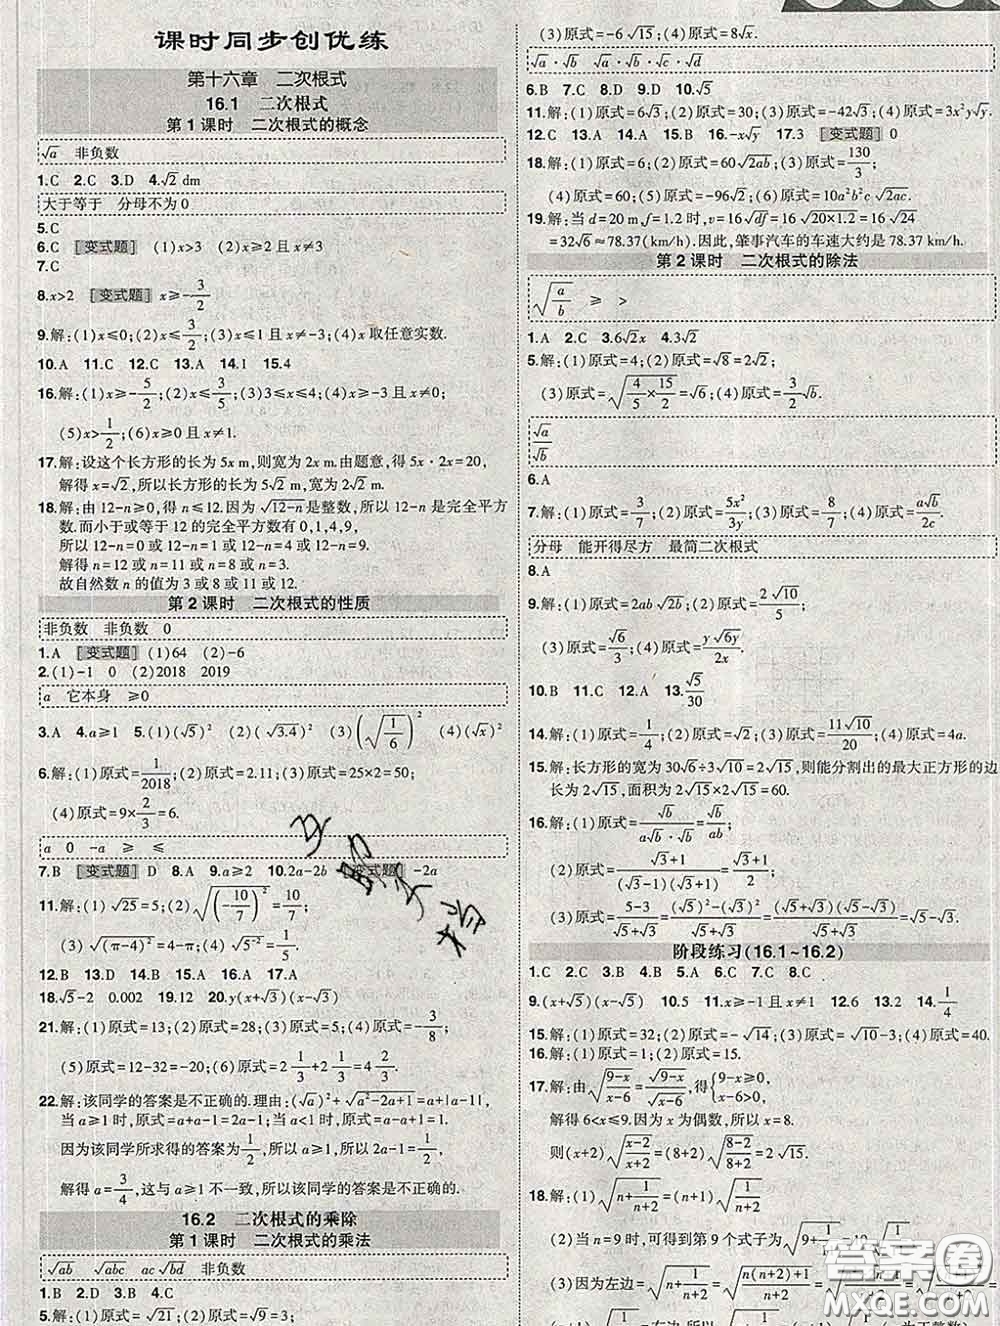 课时同步创优练
第十六章 二次根式
16.1 二次根式
第1课时 二次根式的概念
√a 非负数
1.C 2.C 3.D 4.√2 dm
大于等于 分母不为0
5.C
6.C [变式题] (1)x>3 (2)x≥2且x≠3
7.C
8.x>2 [变式题] x≥-3/2
9.解:(1)x≤0;(2)x≤3/2;(3)x≤1且x≠-3;(4)x取任意实数.
10.A 11.C 12.C 13.A 14.1 15.4
16.解:(1)x≥-5/2;(2)x≤3/5;(3)3≤x≤4;(4)x≥-3且x≠0;
(5)x>1/2;(6)x≥0且x≠1.
17.解:设这个长方形的长为5x m,则宽为2x m.由题意,得5x·2x=20,
解得x=√2,所以长方形的长为5√2 m,宽为2√2 m.
18.解:由12-n≥0,得n≤12.因为√(12-n)是整数,所以12-n是完全平方
数.而小于或等于12的完全平方数有0,1,4,9,
所以12-n=0或12-n=1或12-n=4或12-n=9.
解得n=12或n=11或n=8或n=3.
故自然数n的值为3或8或11或12.
第2课时 二次根式的性质
非负数 非负数 0
1.A [变式题] (1)64 (2)-6
2.(1)-1 0 (2)2018 2019
a 它本身 ≥0
3.A 4.a≥1 5.(1)(√5)² (2)(√3.4)² (3)(√(1/6))² (4)(√x)²
6.解:(1)原式=1/2018;(2)原式=2.11;(3)原式=25×2=50;
(4)原式=9×2/3=6.
a 0 -a ≥ ≤
7.B [变式题] D 8.A 9.a≥2 10.2a-2b [变式题] -2a
11.解:(1)√25=5;(2)√((-10/7)²)=10/7;
(3)√((π-4)²)=4-π;(4)√(5⁻²)=1/5
12.B 13.D 14.D 15.B 16.A 17.B
18.√5-2 0.002 19.12 20.y(x+√3)(x-√3)
21.解:(1)原式=13;(2)原式=28;(3)原式=5;(4)原式=-3/8;
(5)原式=12-32=-20;(6)原式=2 2/3+2=4 2/3.
22.解:该同学的答案是不正确的.理由:(√a)²+√(a²-2a+1)=a+|a-1|,
当a≥1时,原式=a+a-1=2a-1;当a<1时,原式=a-a+1=1.
因为该同学所求得的答案为1/2,所以a≥1,所以2a-1=1/2,
解得a=3/4,这与a≥1不一致,所以该同学的答案是不正确的.
16.2 二次根式的乘除
第1课时 二次根式的乘法
√ab √abc ac√bd 非负数
1.B 2.D 3.B 4.C
5.解:(1)原式=√21;(2)原式=√9=3;
(3)原式=-6√15;(4)原式=8√x.
√a·√b √a·√b·√c·√d
6.B 7.C 8.D 9.D 10.√5
11.解:(1)原式=6√3;(2)原式=30;(3)原式=-42√3;(4)原式=3x²y√y.
12.C 13.A 14.A 15.B 16.-x√y 17.3 [变式题] 0
18.解:(1)原式=6;(2)原式=60√2ab;(3)原式=130/3;
(4)原式=60;(5)原式=-96√2;(6)原式=10a²b²c√2ac.
19.解:当d=20 m,f=1.2时,v=16√df=16×√(20×1.2)=16×√24
=32√6≈78.37(km/h).因此,肇事汽车的车速大约是78.37 km/h.
第2课时 二次根式的除法
√(a/b) ≥ >
1.A 2.C 3.6√2x 4.3√2
5.解:(1)原式=4;(2)原式=√8=2√2;
(3)原式=√(4/5×15/2)=√6;(4)原式=3/2√b.
√a/√b
6.A
7.解:(1)原式=3/7;(2)原式=5x²/3y;(3)原式=8/7;(4)原式=a√b/2c.
分母 能开得尽方 最简二次根式
8.A
9.解:(1)原式=2ab√2b;(2)原式=2√10/5;
(3)原式=√6/3;(4)原式=y√6y/2x.
10.B 11.C 12.A 13.√5/30
14.解:(1)原式=1/4;(2)原式=√2;(3)原式=11√10/20;(4)原式=4a.
15.解:长方形的宽为30√6÷3√10=2√15,则能分割出的最大正方形的边
长为2√15,面积为2√15×2√15=60.
16.解:(1)原式=√b/(a√b·√b)=√b/ab;
(2)原式=(√3+1)/((√3-1)(√3+1))=(√3+1)/2;
(3)原式=(5-3)/(√5+√3)=((√5)²-(√3)²)/(√5+√3)=(√5+√3)(√5-√3)/(√5+√3)=√5-√3.
阶段练习(16.1~16.2)
1.C 2.C 3.B 4.D 5.C 6.C 7.C 8.C
9.(x+√5)(x-√5) 10.5 11.x≥-1且x≠1 12.6 13.2 14.1/4
15.解:(1)原式=32;(2)原式=-√14;(3)原式=√10-3;(4)原式=40.
16.解:(1)原式=1;(2)原式=15.
17.解:由√((9-x)/(x-6))=√(9-x)/√(x-6),得{9-x≥0, x-6>0,
解得6<x≤9.因为x为偶数,所以x=8.
则(x+2)√((x-2)/(x+2))=(8+2)×√((8-2)/(8+2))=2√15.
18.解:(1)√(n+1/(n+2))=(n+1)√(1/(n+2))
(2)当n=9时,可得到第9个式子为√(9+1/11)
(3)因为左边=√(n+1/(n+2))=√((n(n+2)+1)/(n+2))
答案圈
MXQE.COM